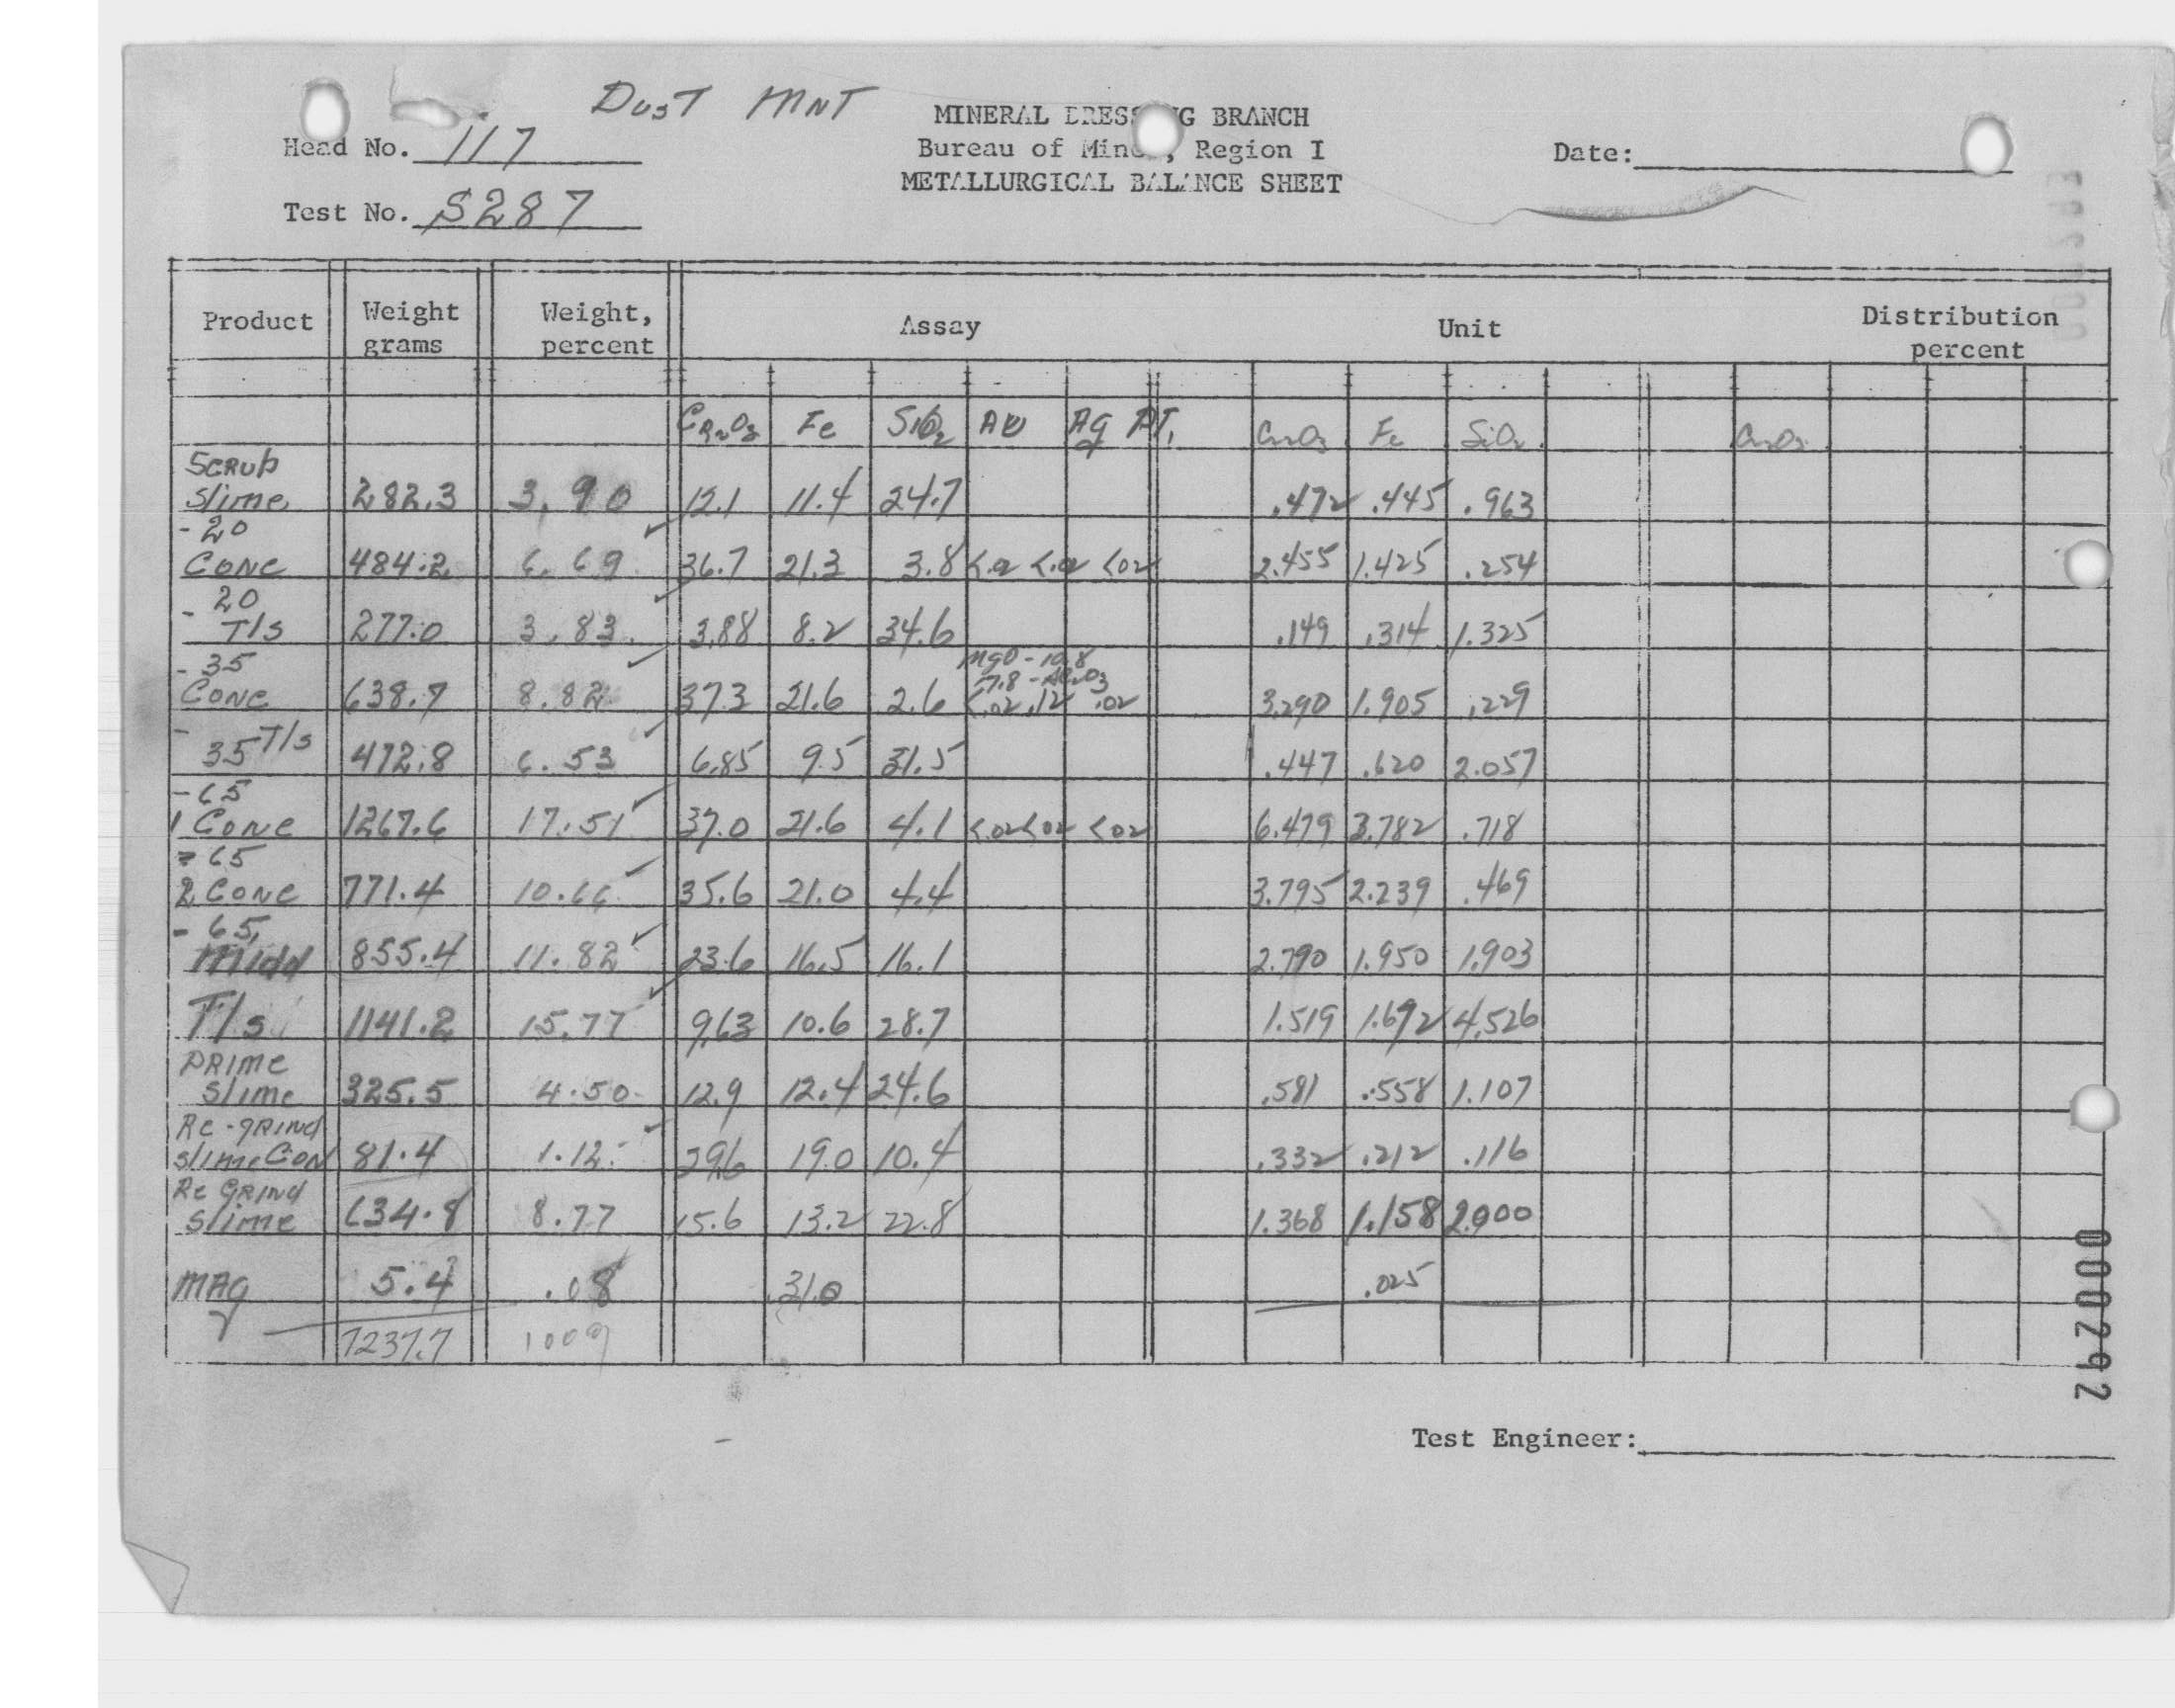 DUST MNT
MINERAL DRESSING BRANCH
Head No. 117
Bureau of Mines, Region I
Date:
METALLURGICAL BALANCE SHEET
Test No. S287
Product Weight grams Weight, percent Assay Unit Distribution percent
Cr2O3 Fe SiO2 Au Ag PT. Cr2O3 Fe SiO2 Cr2O3
Scrub Slime 282.3 3.90 12.1 11.4 24.7 .472 .445 .963
-20 Conc 484.2 6.69 36.7 21.3 3.8 <.02 <.02 <02 2.455 1.425 .254
-20 T/s 277.0 3.83 3.88 8.2 34.6 .149 .314 1.325
MgO-10.8
7.8-Al2O3
-35 Conc 638.7 8.82 37.3 21.6 2.6 <.02 .12 .02 3.290 1.905 .229
-35 T/s 472.8 6.53 6.85 9.5 31.5 .447 .620 2.057
-65 1 Conc 1267.6 17.51 37.0 21.6 4.1 <.02 <02 <02 6.479 3.782 .718
-65 2 Conc 771.4 10.66 35.6 21.0 4.4 3.795 2.239 .469
-65 Midd 855.4 11.82 23.6 16.5 16.1 2.790 1.950 1.903
T/s 1141.2 15.77 9.63 10.6 28.7 1.519 1.672 4.526
PRIME Slime 325.5 4.50 12.9 12.4 24.6 .581 .558 1.107
Re-grind slime Con 81.4 1.12 29.6 19.0 10.4 .332 .212 .116
Re Grind slime 634.8 8.77 15.6 13.2 22.8 1.368 1.158 2.000
MAG 5.4 .08 31.0 .025
7237.7
Test Engineer:
000292